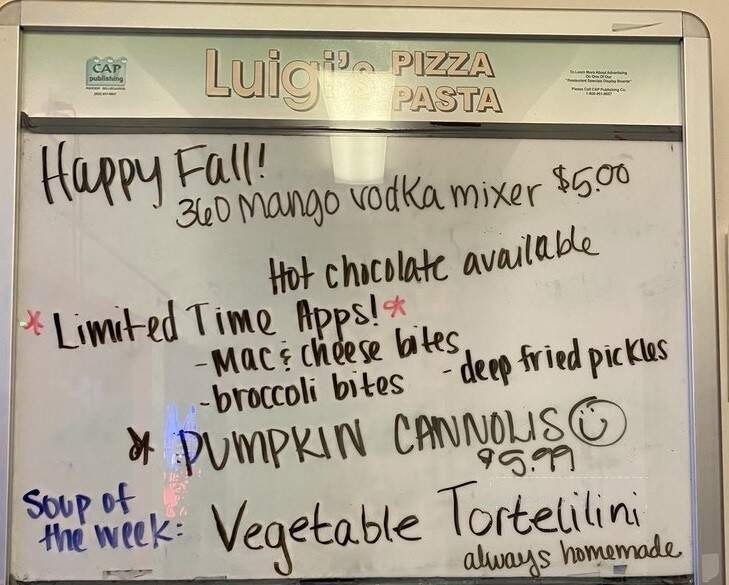 CAP
publishing
Luigi's PIZZA
PASTA
To Learn More About Advertising
On One Of Our
"Restaurant Specials Display Boards"
Please Call CAP Publishing Co.
Happy Fall!
360 Mango vodka mixer $5.00
Hot chocolate available
* Limited Time Apps! *
- Mac & cheese bites
- broccoli bites - deep fried pickles
* PUMPKIN CANNOLIS
$5.99
Soup of
the week: Vegetable Tortelilini
always homemade